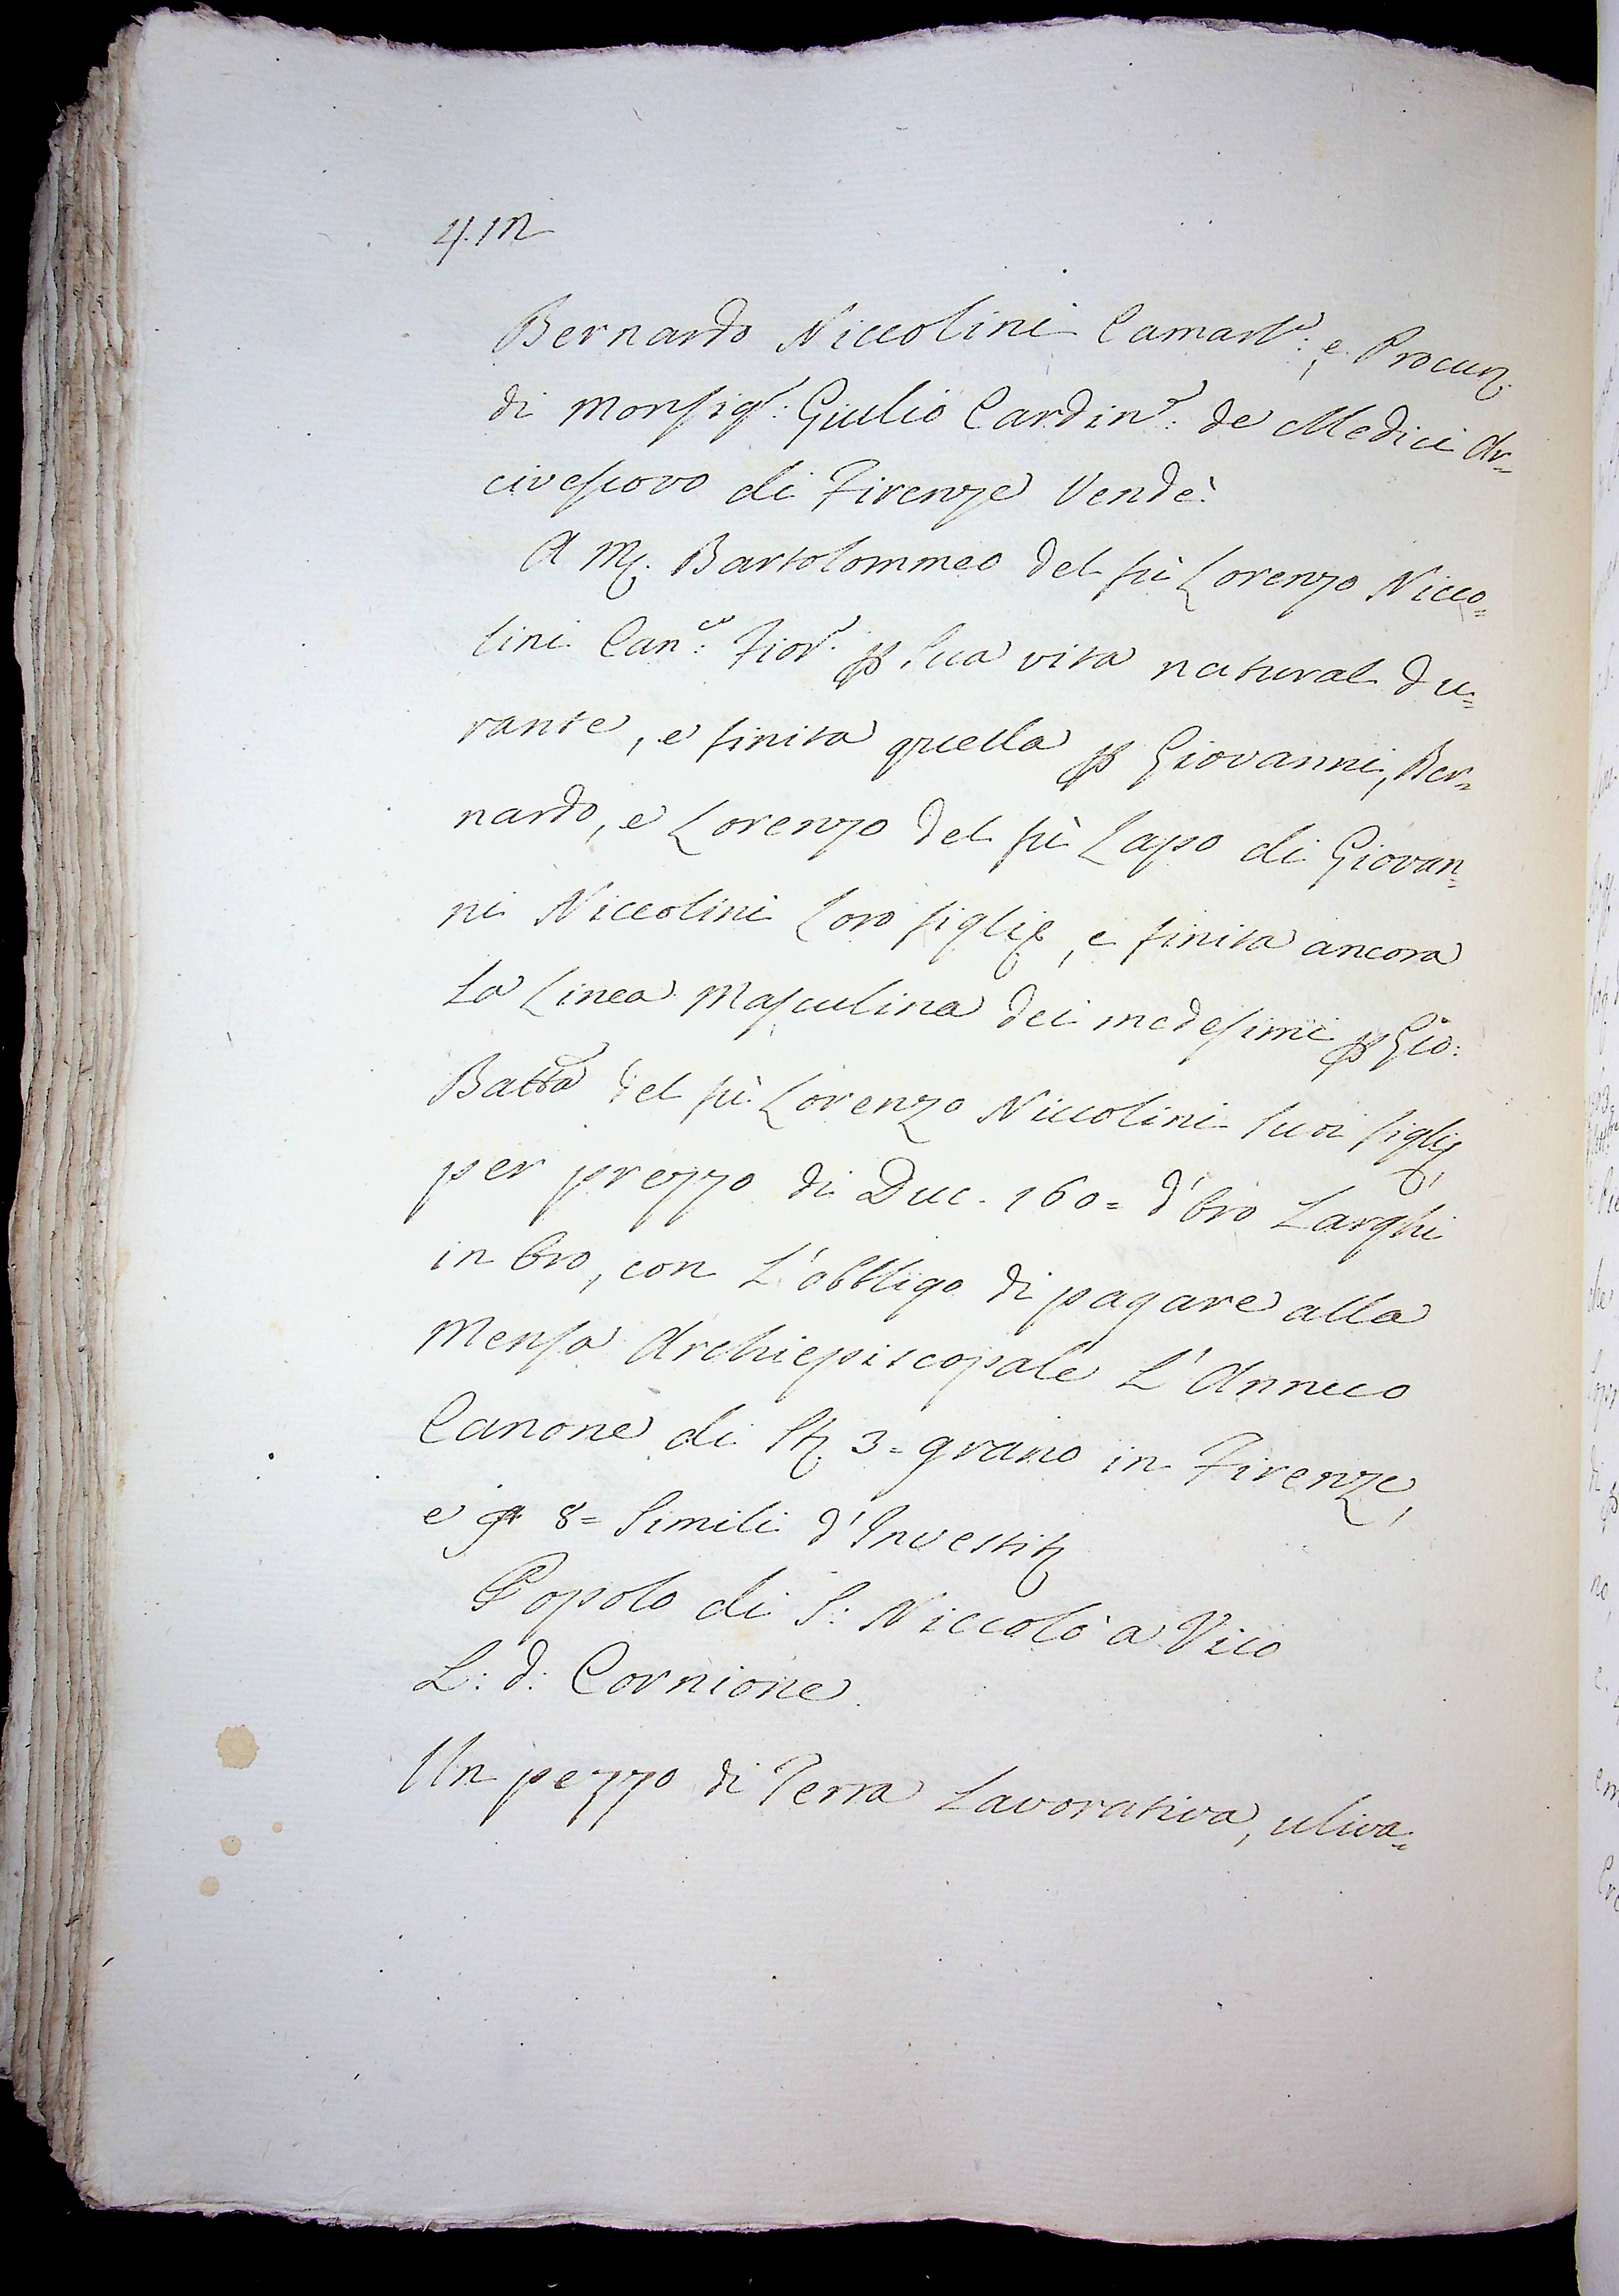 4. m
Bernardo Niccolini Camarl.º: e Procur.
di Monsig.r: Giulio Cardin.e: de Medici Ar=
civescovo di Firenze Vendè:
A M. Bartolommeo del fù Lorenzo Nicco=
lini Can.co: Fior.o p Sua vita natural du=
rante, e finita quella p Giovanni, Ber=
nardo, e Lorenzo del fù Lapo di Giovan=
ni Niccolini Loro figli, e finita ancora
La Linea Masculina dei medesimi p Gio:
Batta del fù Lorenzo Niccolini Suoi figli,
per prezzo di Duc. 160= d'Oro Larghi
in Oro, con L'obbligo di pagare alla
Mensa Archiepiscopale L'Annuo
Canone di St. 3= grano in Firenze,
e 8= Simili d'Investit.
Popolo di S: Niccolò a Vico
L: d: Cornione
Un pezzo di Terra Lavorativa, uliva=